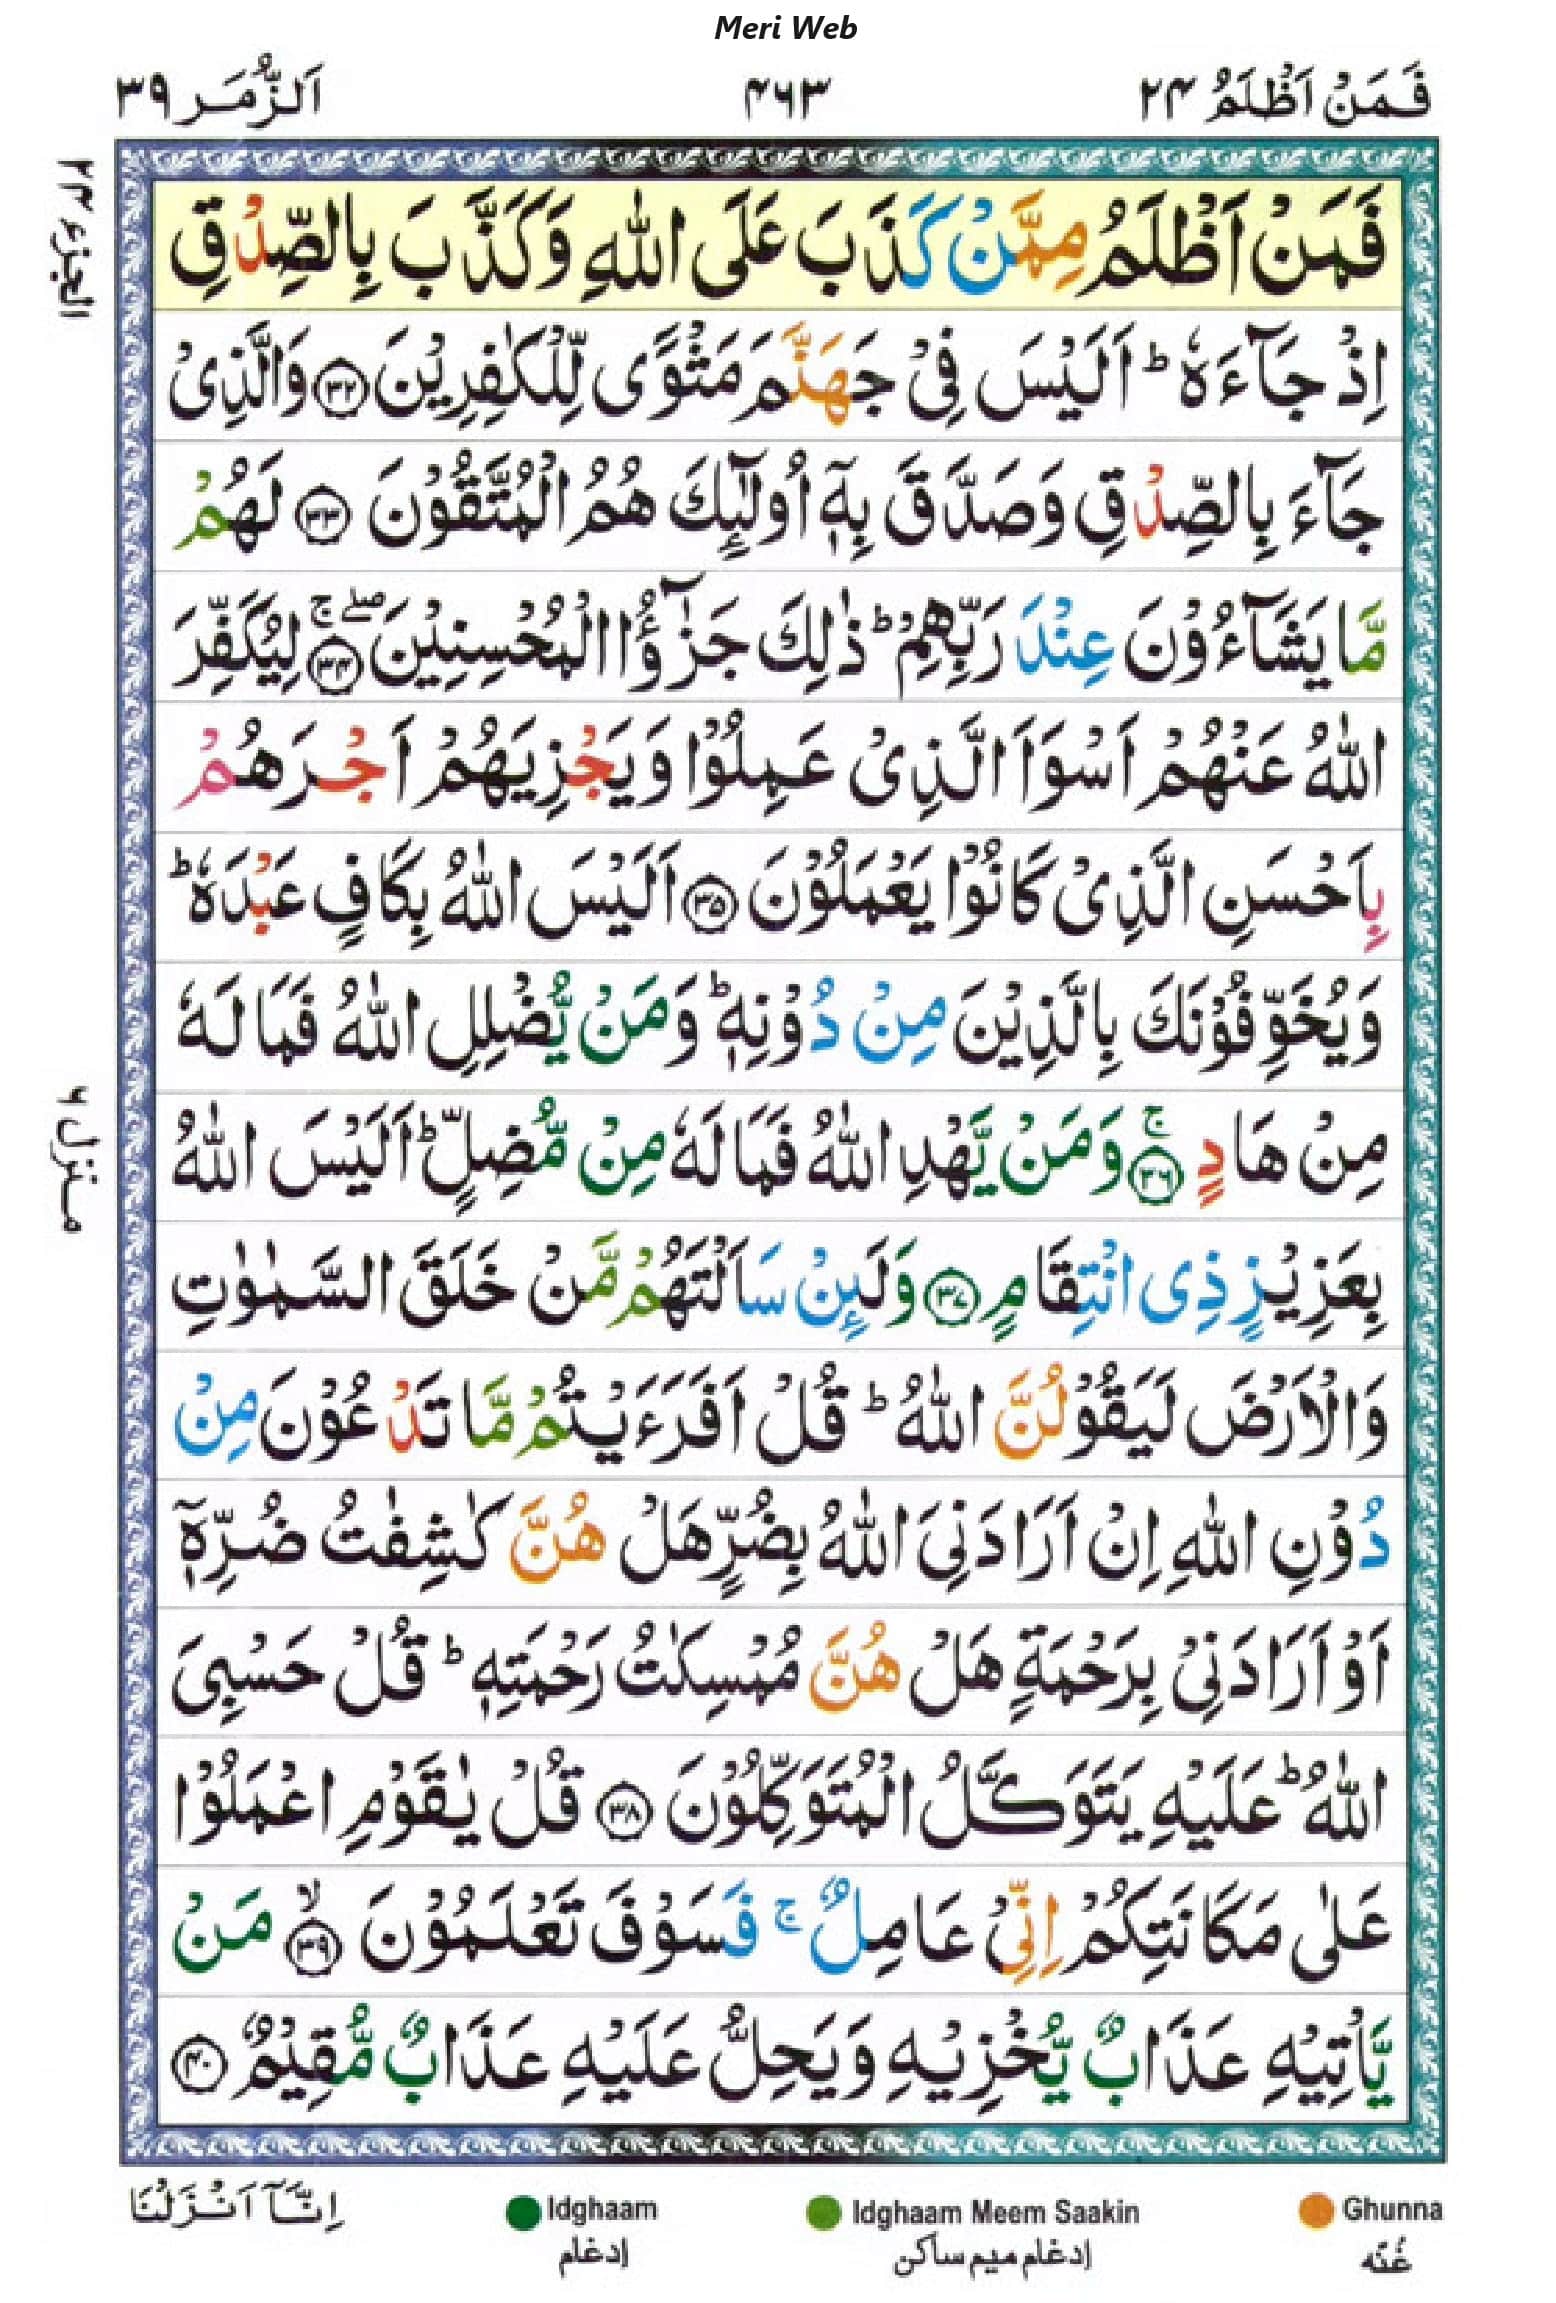 Meri Web
فَمَنْ اَظْلَمُ ۲۴
۴۶۳
اَلزُّمَر ۳۹
الجزء ۲۴
فَمَنْ اَظْلَمُ مِمَّنْ كَذَبَ عَلَى اللّٰهِ وَكَذَّبَ بِالصِّدْقِ
اِذْ جَآءَهٗ ؕ اَلَيْسَ فِىْ جَهَنَّمَ مَثْوًى لِّلْكٰفِرِيْنَ ۝۳۲ وَالَّذِىْ
جَآءَ بِالصِّدْقِ وَصَدَّقَ بِهٖٓ اُولٰٓئِكَ هُمُ الْمُتَّقُوْنَ ۝۳۳ لَهُمْ
مَّا يَشَآءُوْنَ عِنْدَ رَبِّهِمْ ؕ ذٰلِكَ جَزٰٓؤُا الْمُحْسِنِيْنَ ۝۳۴ ۖۚ لِيُكَفِّرَ
اللّٰهُ عَنْهُمْ اَسْوَاَ الَّذِىْ عَمِلُوْا وَيَجْزِيَهُمْ اَجْرَهُمْ
بِاَحْسَنِ الَّذِىْ كَانُوْا يَعْمَلُوْنَ ۝۳۵ اَلَيْسَ اللّٰهُ بِكَافٍ عَبْدَهٗ ؕ
وَيُخَوِّفُوْنَكَ بِالَّذِيْنَ مِنْ دُوْنِهٖ ؕ وَمَنْ يُّضْلِلِ اللّٰهُ فَمَا لَهٗ
مِنْ هَادٍ ۝۳۶ ۚ وَمَنْ يَّهْدِ اللّٰهُ فَمَا لَهٗ مِنْ مُّضِلٍّ ؕ اَلَيْسَ اللّٰهُ
بِعَزِيْزٍ ذِى انْتِقَامٍ ۝۳۷ وَلَئِنْ سَاَلْتَهُمْ مَّنْ خَلَقَ السَّمٰوٰتِ
وَالْاَرْضَ لَيَقُوْلُنَّ اللّٰهُ ؕ قُلْ اَفَرَءَيْتُمْ مَّا تَدْعُوْنَ مِنْ
دُوْنِ اللّٰهِ اِنْ اَرَادَنِىَ اللّٰهُ بِضُرٍّ هَلْ هُنَّ كٰشِفٰتُ ضُرِّهٖٓ
اَوْ اَرَادَنِىْ بِرَحْمَةٍ هَلْ هُنَّ مُمْسِكٰتُ رَحْمَتِهٖ ؕ قُلْ حَسْبِىَ
اللّٰهُ ؕ عَلَيْهِ يَتَوَكَّلُ الْمُتَوَكِّلُوْنَ ۝۳۸ قُلْ يٰقَوْمِ اعْمَلُوْا
عَلٰى مَكَانَتِكُمْ اِنِّىْ عَامِلٌ ۚ فَسَوْفَ تَعْلَمُوْنَ ۝۳۹ ۙ مَنْ
يَّاْتِيْهِ عَذَابٌ يُّخْزِيْهِ وَيَحِلُّ عَلَيْهِ عَذَابٌ مُّقِيْمٌ ۝۴۰
منزل ۶
اِنَّآ اَنْزَلْنَا
Idghaam
ادغام
Idghaam Meem Saakin
ادغام میم ساکن
Ghunna
غُنّه